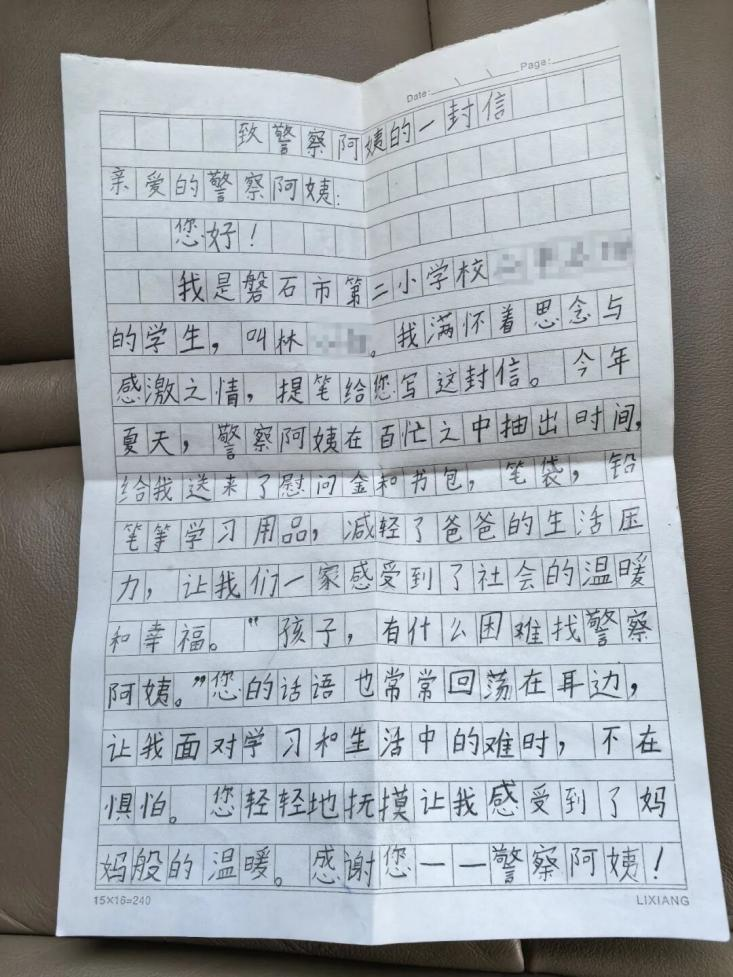 Date: Page:
致警察阿姨的一封信
亲爱的警察阿姨:
您好!
我是磐石市第二小学校
的学生,叫林。我满怀着思念与
感激之情,提笔给您写这封信。今年
夏天,警察阿姨在百忙之中抽出时间,
给我送来了慰问金和书包,笔袋,铅
笔等学习用品,减轻了爸爸的生活压
力,让我们一家感受到了社会的温暖
和幸福。“孩子,有什么困难找警察
阿姨。”您的话语也常常回荡在耳边,
让我面对学习和生活中的难时,不在
惧怕。您轻轻地抚摸让我感受到了妈
妈般的温暖。感谢您——警察阿姨!
15×16=240 LIXIANG